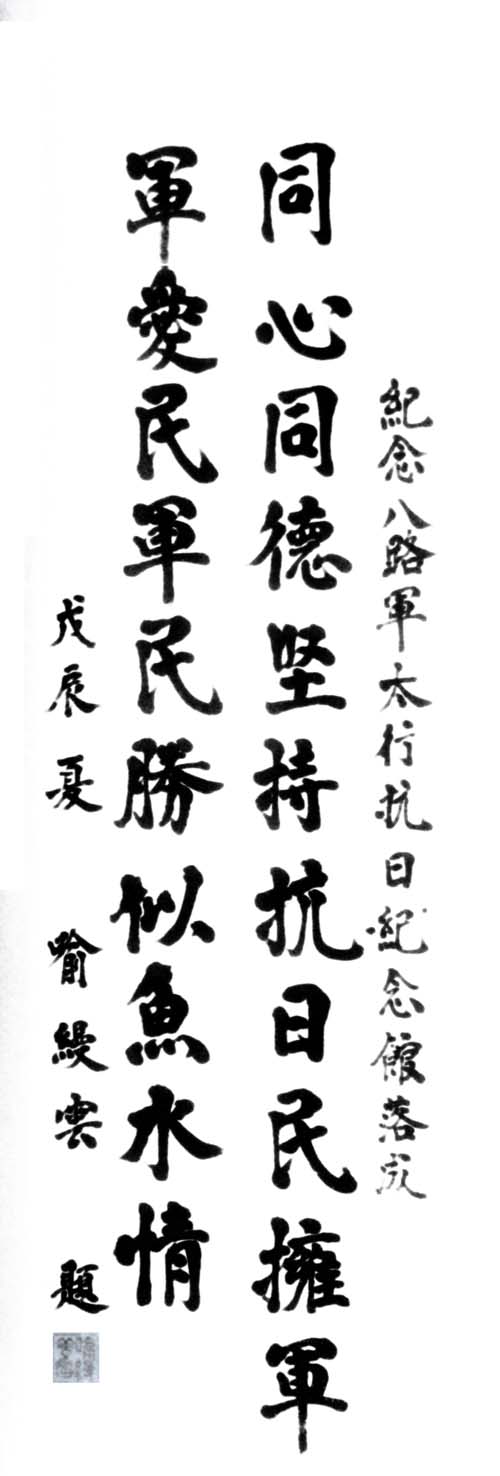 紀念八路軍太行抗日紀念館落成
同心同德堅持抗日民擁軍
軍愛民軍民勝似魚水情
戊辰夏 喻縵雲 題